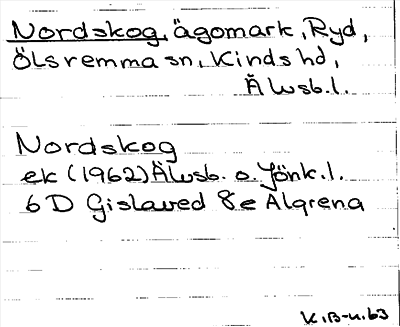 Nordskog, ägomark, Ryd,
Ölsremma sn, Kinds hd,
Älvsb.l.
Nordskog
ek (1962) Älvsb. o. Jönk.l.
6D Gislaved 8e Älgrena
K.B-n.63